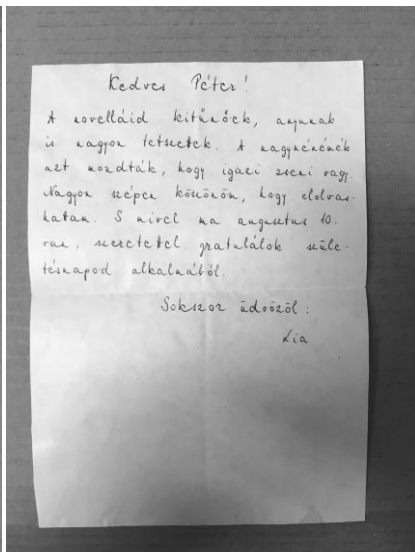 Kedves Péter!
A novelláid kitűnőek, anyunak
is nagyon tetszettek. A nagynénénék
azt mondták, hogy igazi zseni vagy.
Nagyon szépen köszönöm, hogy elolvas-
hattam. S mivel ma augusztus 10.
van, szeretettel gratulálok szüle-
tésnapod alkalmából.
Sokszor üdvözöl:
Lia